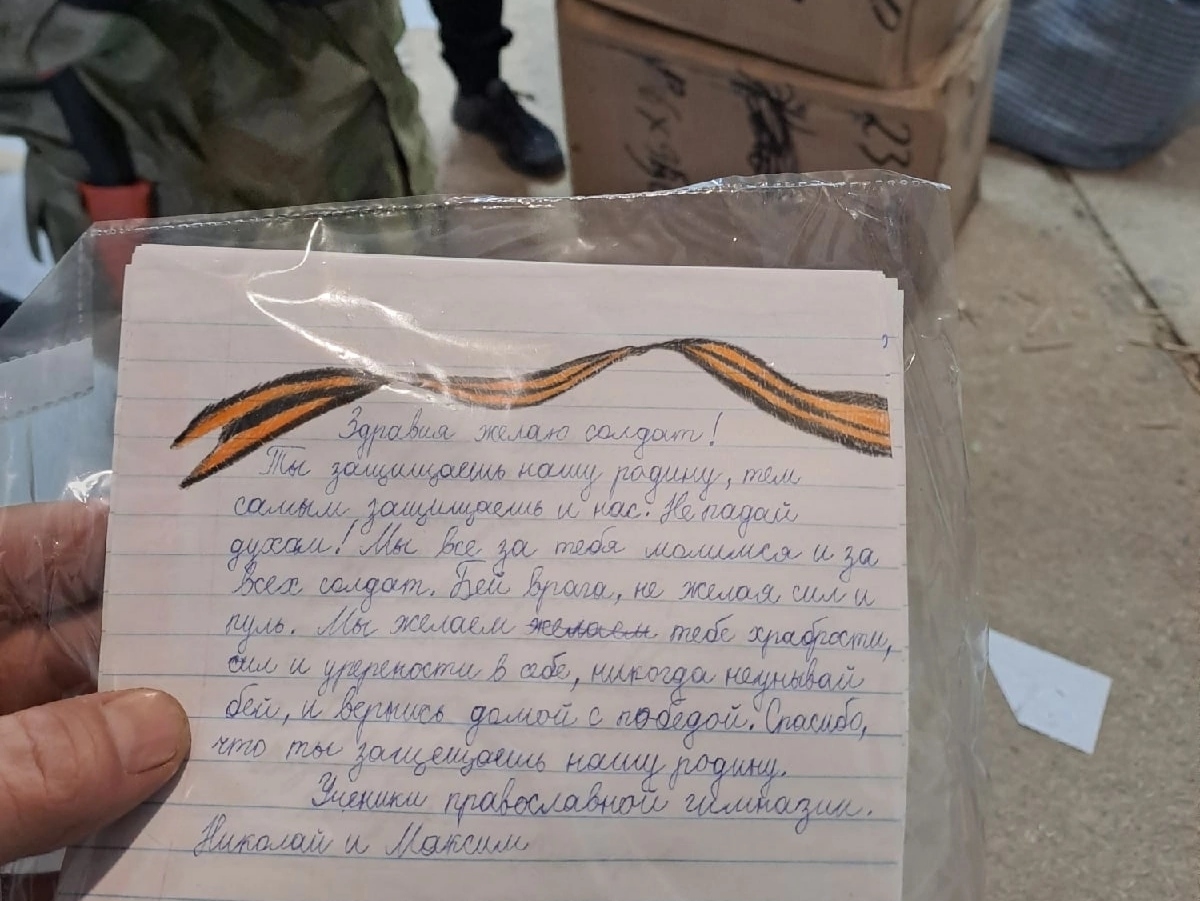 23
Здравия желаю солдат!
Ты защищаешь нашу родину, тем
самым защищаешь и нас. Не падай
духом! Мы все за тебя молимся и за
всех солдат. Бей врага, не желая сил и
пуль. Мы желаем желаем тебе храбрости,
сил и уререности в себе, никогда неунывай
бей, и вернись домой с победой. Спасибо,
что ты защещаешь нашу родину.
Ученики православной гимназии.
Николай и Максим